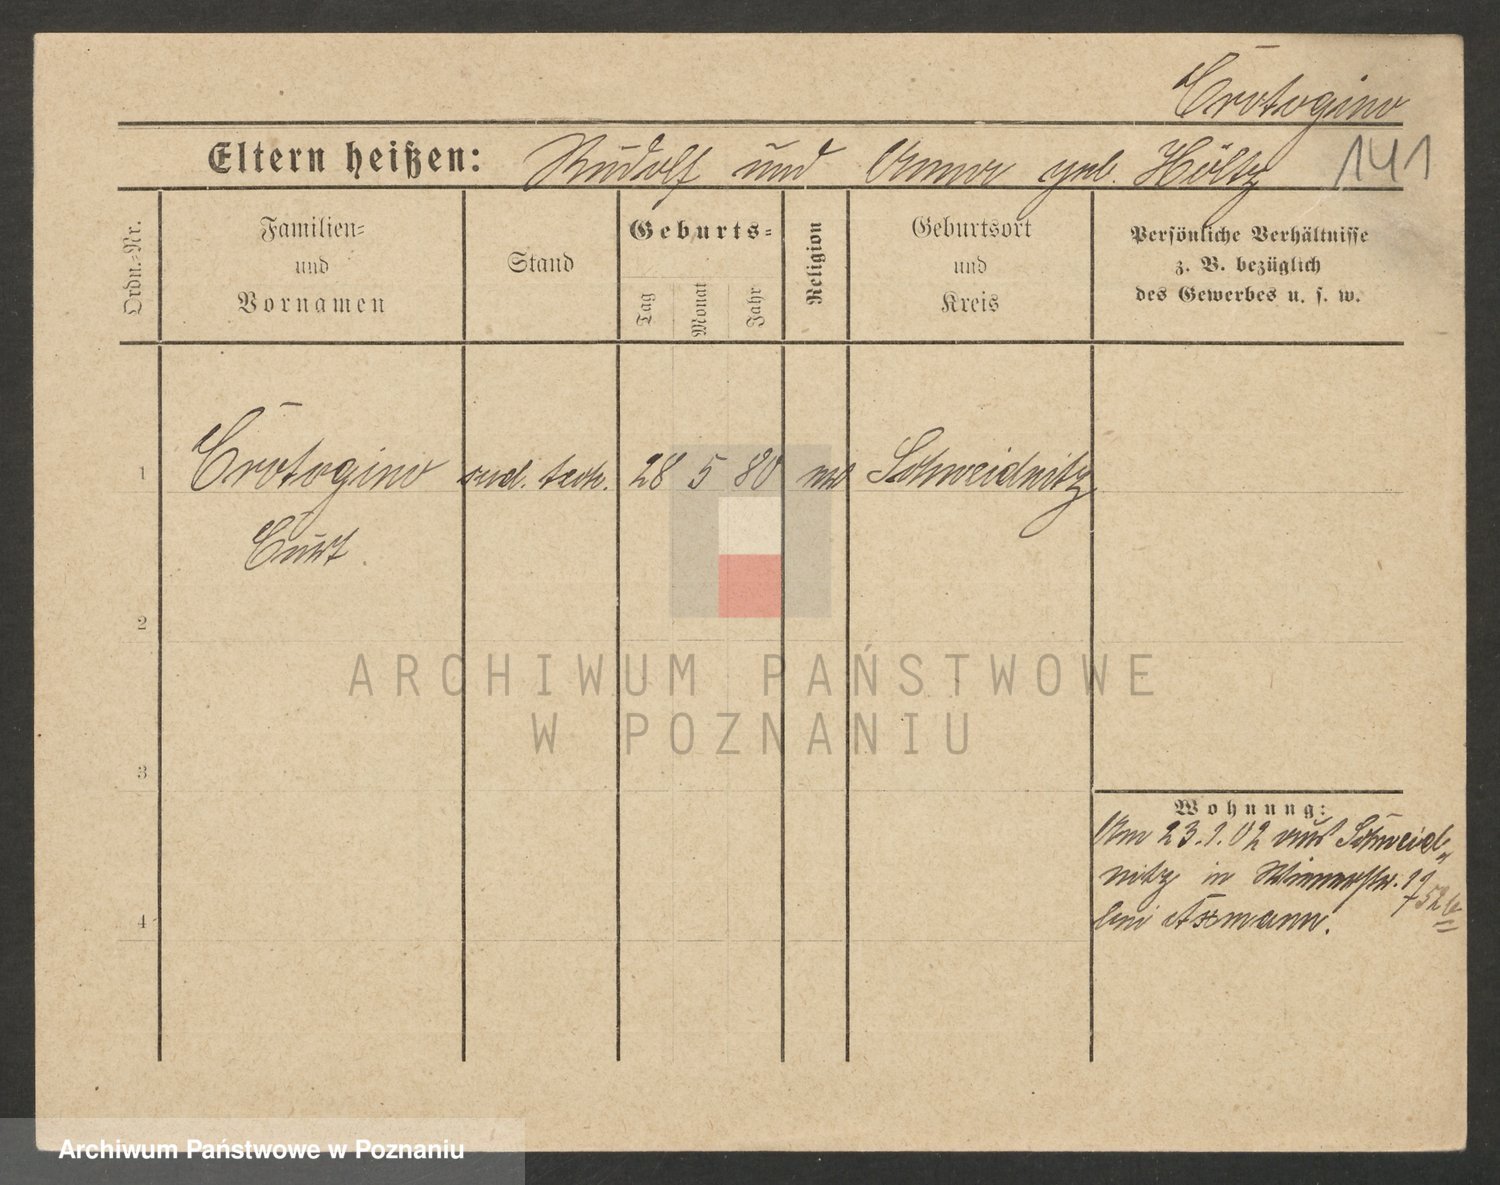 Crotogino
Eltern heißen: Rudolf und Anna geb. Höltz 141
Ordn.=Nr.
Familien=
und
Vornamen
Stand
Geburts=
Tag
Monat
Jahr
Religion
Geburtsort
und
Kreis
Persönliche Verhältnisse
z. B. bezüglich
des Gewerbes u. s. w.
1 Crotogino techn. 28 5 80 Schweidnitz
Curt.
2
ARCHIWUM PAŃSTWOWE
W POZNANIU
3
Wohnung:
Am 23.1.02 aus Schweid„
nitz in
bei Assmann.
4
Archiwum Państwowe w Poznaniu